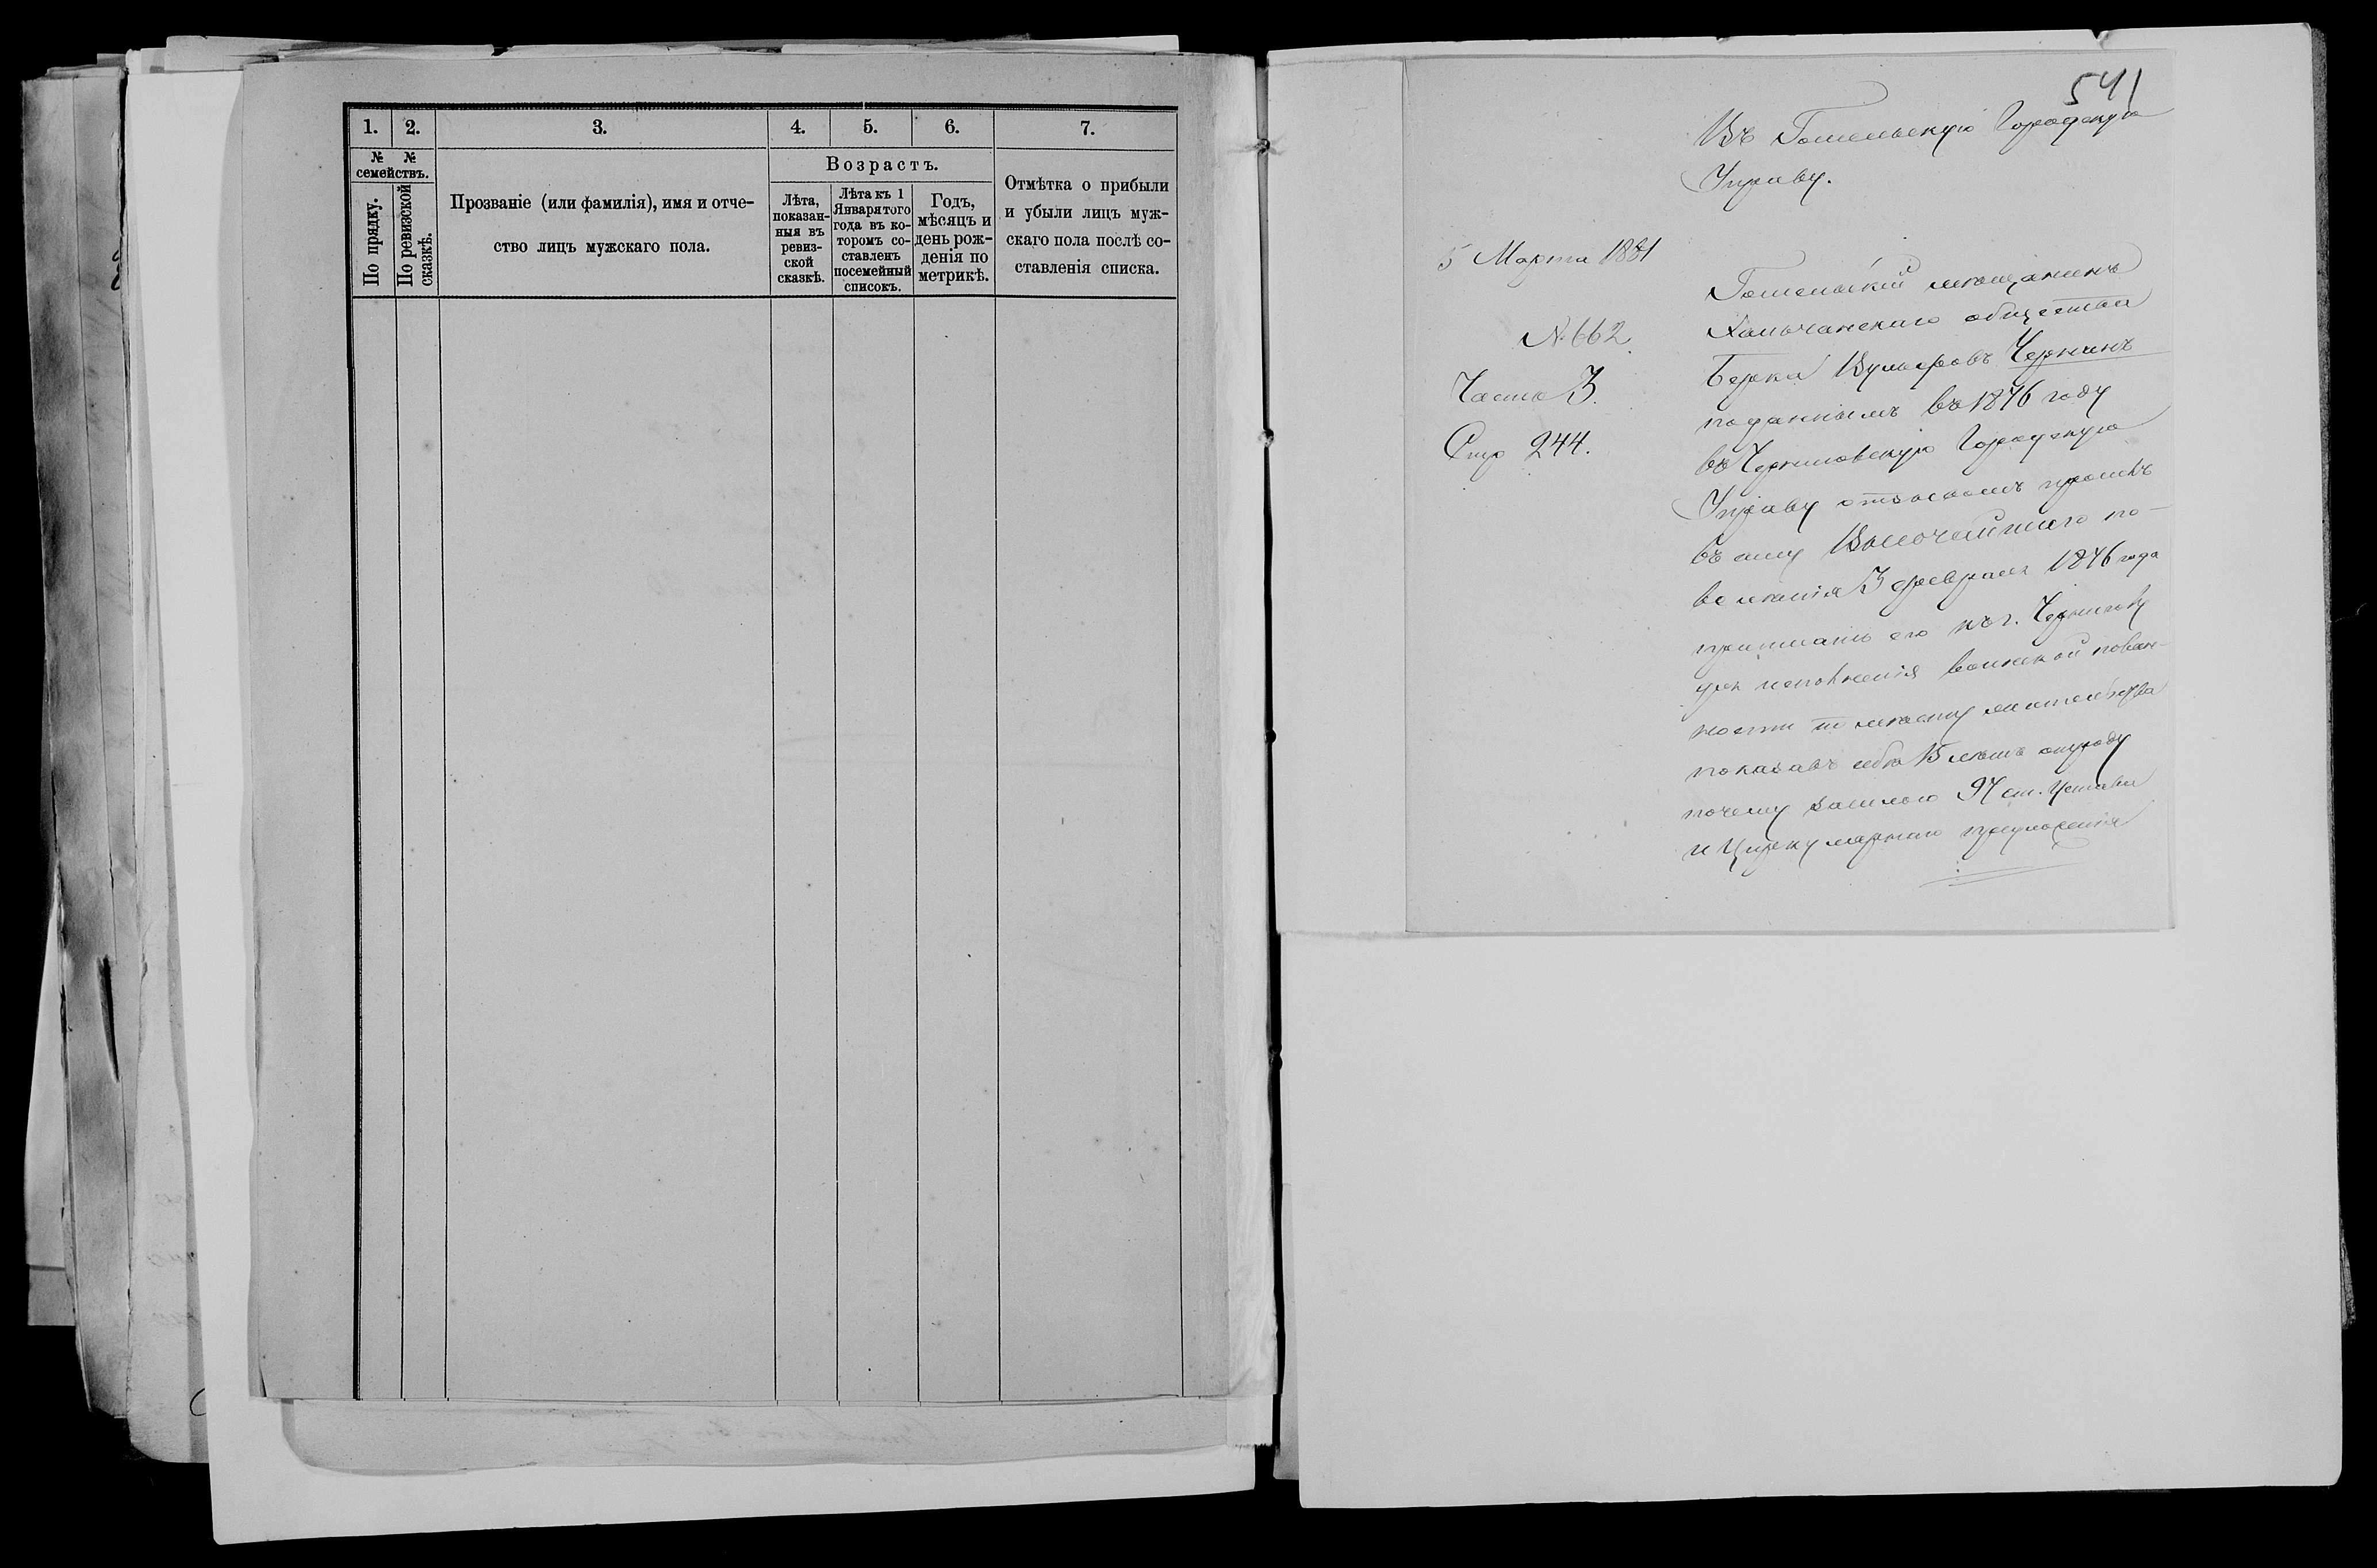 1. 2. 3. 4. 5. 6. 7.
№ № семействъ.
По прядку.
По ревизской сказкѣ.
Прозваніе (или фамилія), имя и отче-
ство лицъ мужскаго пола.
Возрастъ.
Лѣта,
показан-
ныя въ
ревиз-
ской
сказкѣ.
Лѣта къ 1
Января того
года въ ко-
торомъ со-
ставленъ
посемейный
списокъ.
Годъ,
мѣсяцъ и
день рож-
денія по
метрикѣ.
Отмѣтка о прибыли
и убыли лицъ муж-
скаго пола послѣ со-
ставленія списка.
541
Въ Гомельскую Городскую
Управу.
5 Марта 1881
№ 662
Часть 3.
Стр 244.
Гомельскій мѣщанинъ
Хальчанскаго общества
Берка Вульфовъ Чернинъ
поданнымъ въ 1876 году
въ Черниговскую Городскую
Управу отзывомъ просилъ
въ силу Высочайшаго по-
велѣнія 3 февраля 1876 года
приписать его къ г. Чернигову
для исполненія воинской повин-
ности по мѣсту жительства
показавъ себя 15 лѣтъ отроду
почему въ силу 97 ст. Устава
и Циркулярнаго предложенія